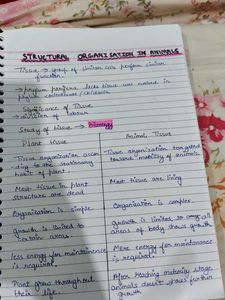 STRUCTURAL ORGANISATION IN ANIMALS
Tissue → group of similar cells perform similar function.
→ phylum porifera lacks tissue
Significance of Tissue
→ division of labour
Study of tissue → Histology
Plant tissue Animal Tissue
Tissue organisation according to the stationary habit of plant. Tissue organization targeted toward mobility of animals.
Most tissue in plant structure are dead Most tissue are living
Organisation is simple Organisation is complex.
growth is limited to certain areas. growth is limited to all areas of body shows growth
less energy for maintenance is required. More energy for maintenance is required.
Plant grow throughout their life After reaching maturity stage animals doesn't show further growth